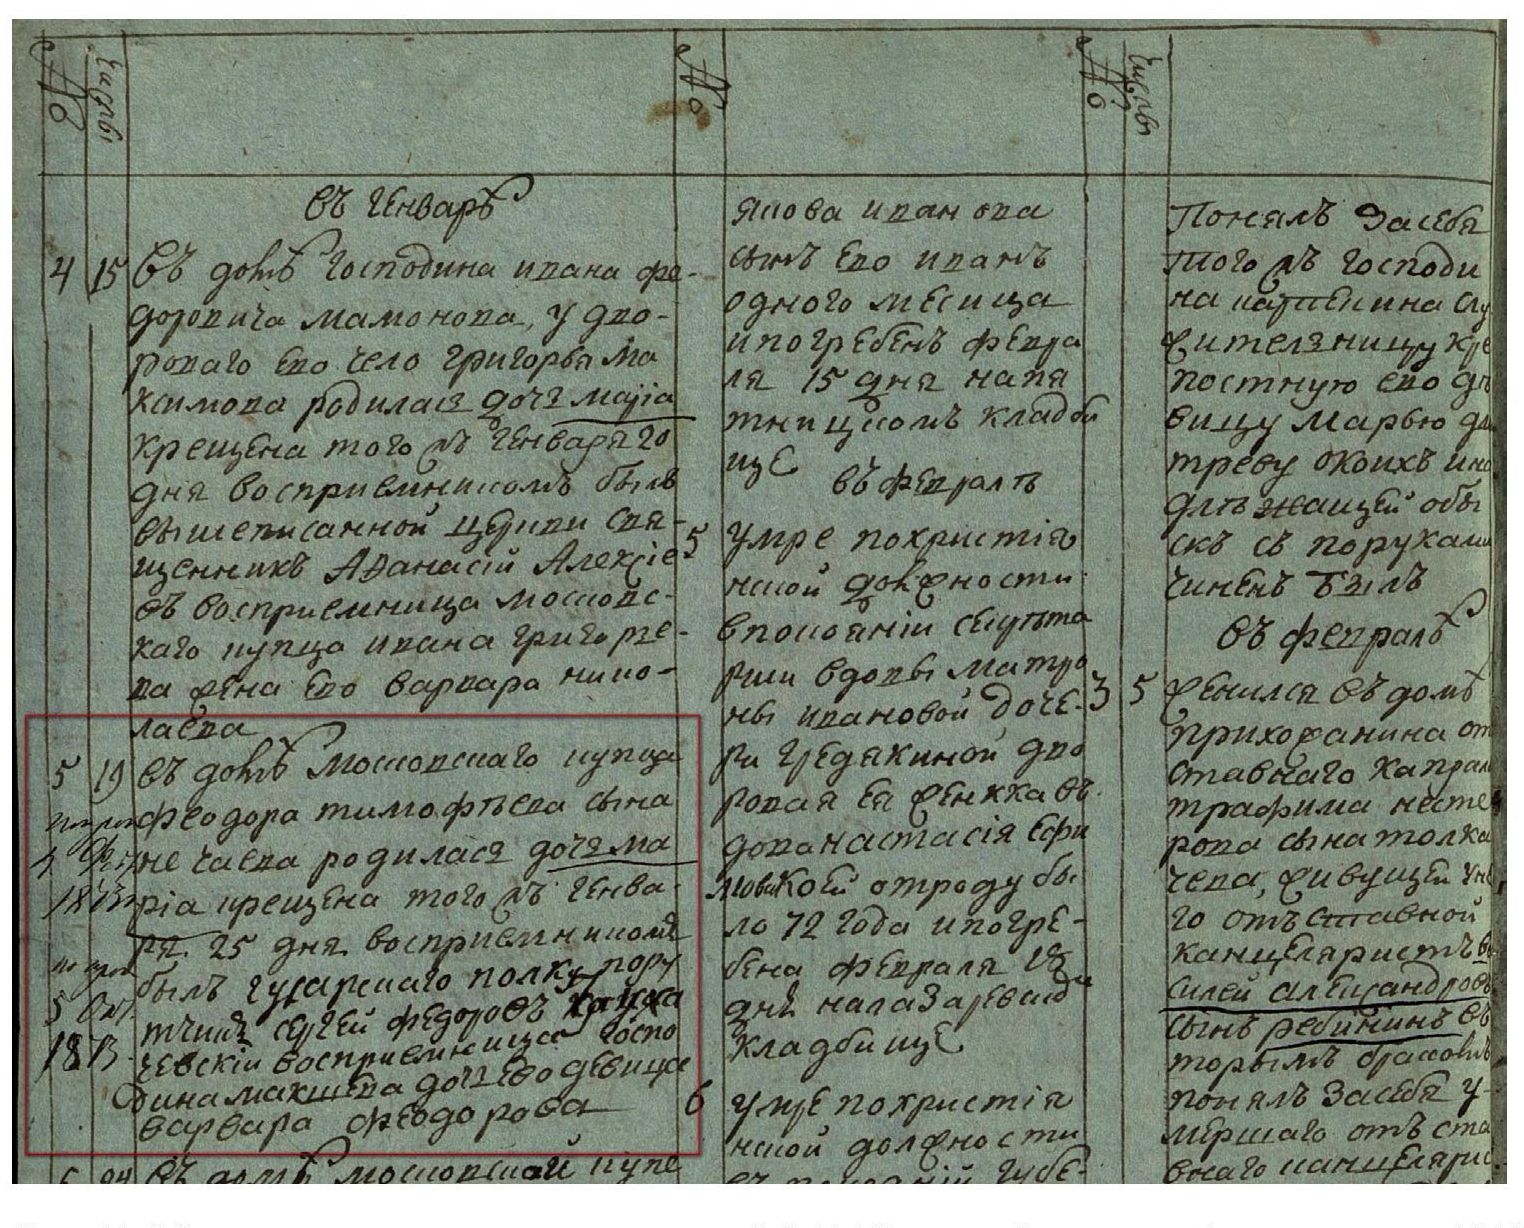 №
числы
№
№
числы
въ Генварѣ
4 15 Въ домѣ господина ивана фе-
доровича мамонова, у дво-
роваго ево чело григорья ма
ксимова родилась дочь марiа
крещена того мъ генваря 20
дня восприемникомъ былъ
вышеписанной церкви свя-
щенникъ Афанасiй Алексiе
въ восприемница московс-
каго купца ивана григорье-
ва жена ево варвара нико-
лаева
5 19 въ домѣ московскаго купца
феодора тимофѣева сына
нечаева родилася дочь ма
рiа крещена того мъ генва-
ря 25 дня восприемникомъ
былъ гусарскаго полку пору
тчикъ сергей федоровъ
чевскiй восприемница госпо
дина макшева дочь ево девица
варвара феодорова
4
18
5 Окт.
18 13
6 въ домѣ московской купе
якова иванова
сынъ ево иванъ
одного месица
и погребенъ февра
ля 15 дня на пя
тницкомъ кладби
ще
въ февралѣ
5 умре похристiя
нской должности
в покоянiи секунта
рши вдовы матро
ны ивановой доче-
ри гредякиной дво
ровая ея женка в-
дова настасiя ефи
мова коей отроду бы
ло 72 года и погре-
бена февраля 18
дня на лазаревско
кладбище
6 умре похристiя
нской должности
понялъ засебя
того мъ господи
на каржена слу
жительницу кре
постную ево дѣ
вицу марью дми
треву окоихъ и на
длѣжащей обы
скъ съ поруками
чиненъ былъ
въ февралѣ
3 5 женился въ домѣ
прихожанина от
ставнаго капрала
трафима несте
рова сына толка
чева, живущей у не
го отъставной
канцеляристъ ва
силей александровъ
сынъ ребининъ въ
торымъ бракомъ
понялъ засебя у-
мершаго отъста
внаго канцелярис